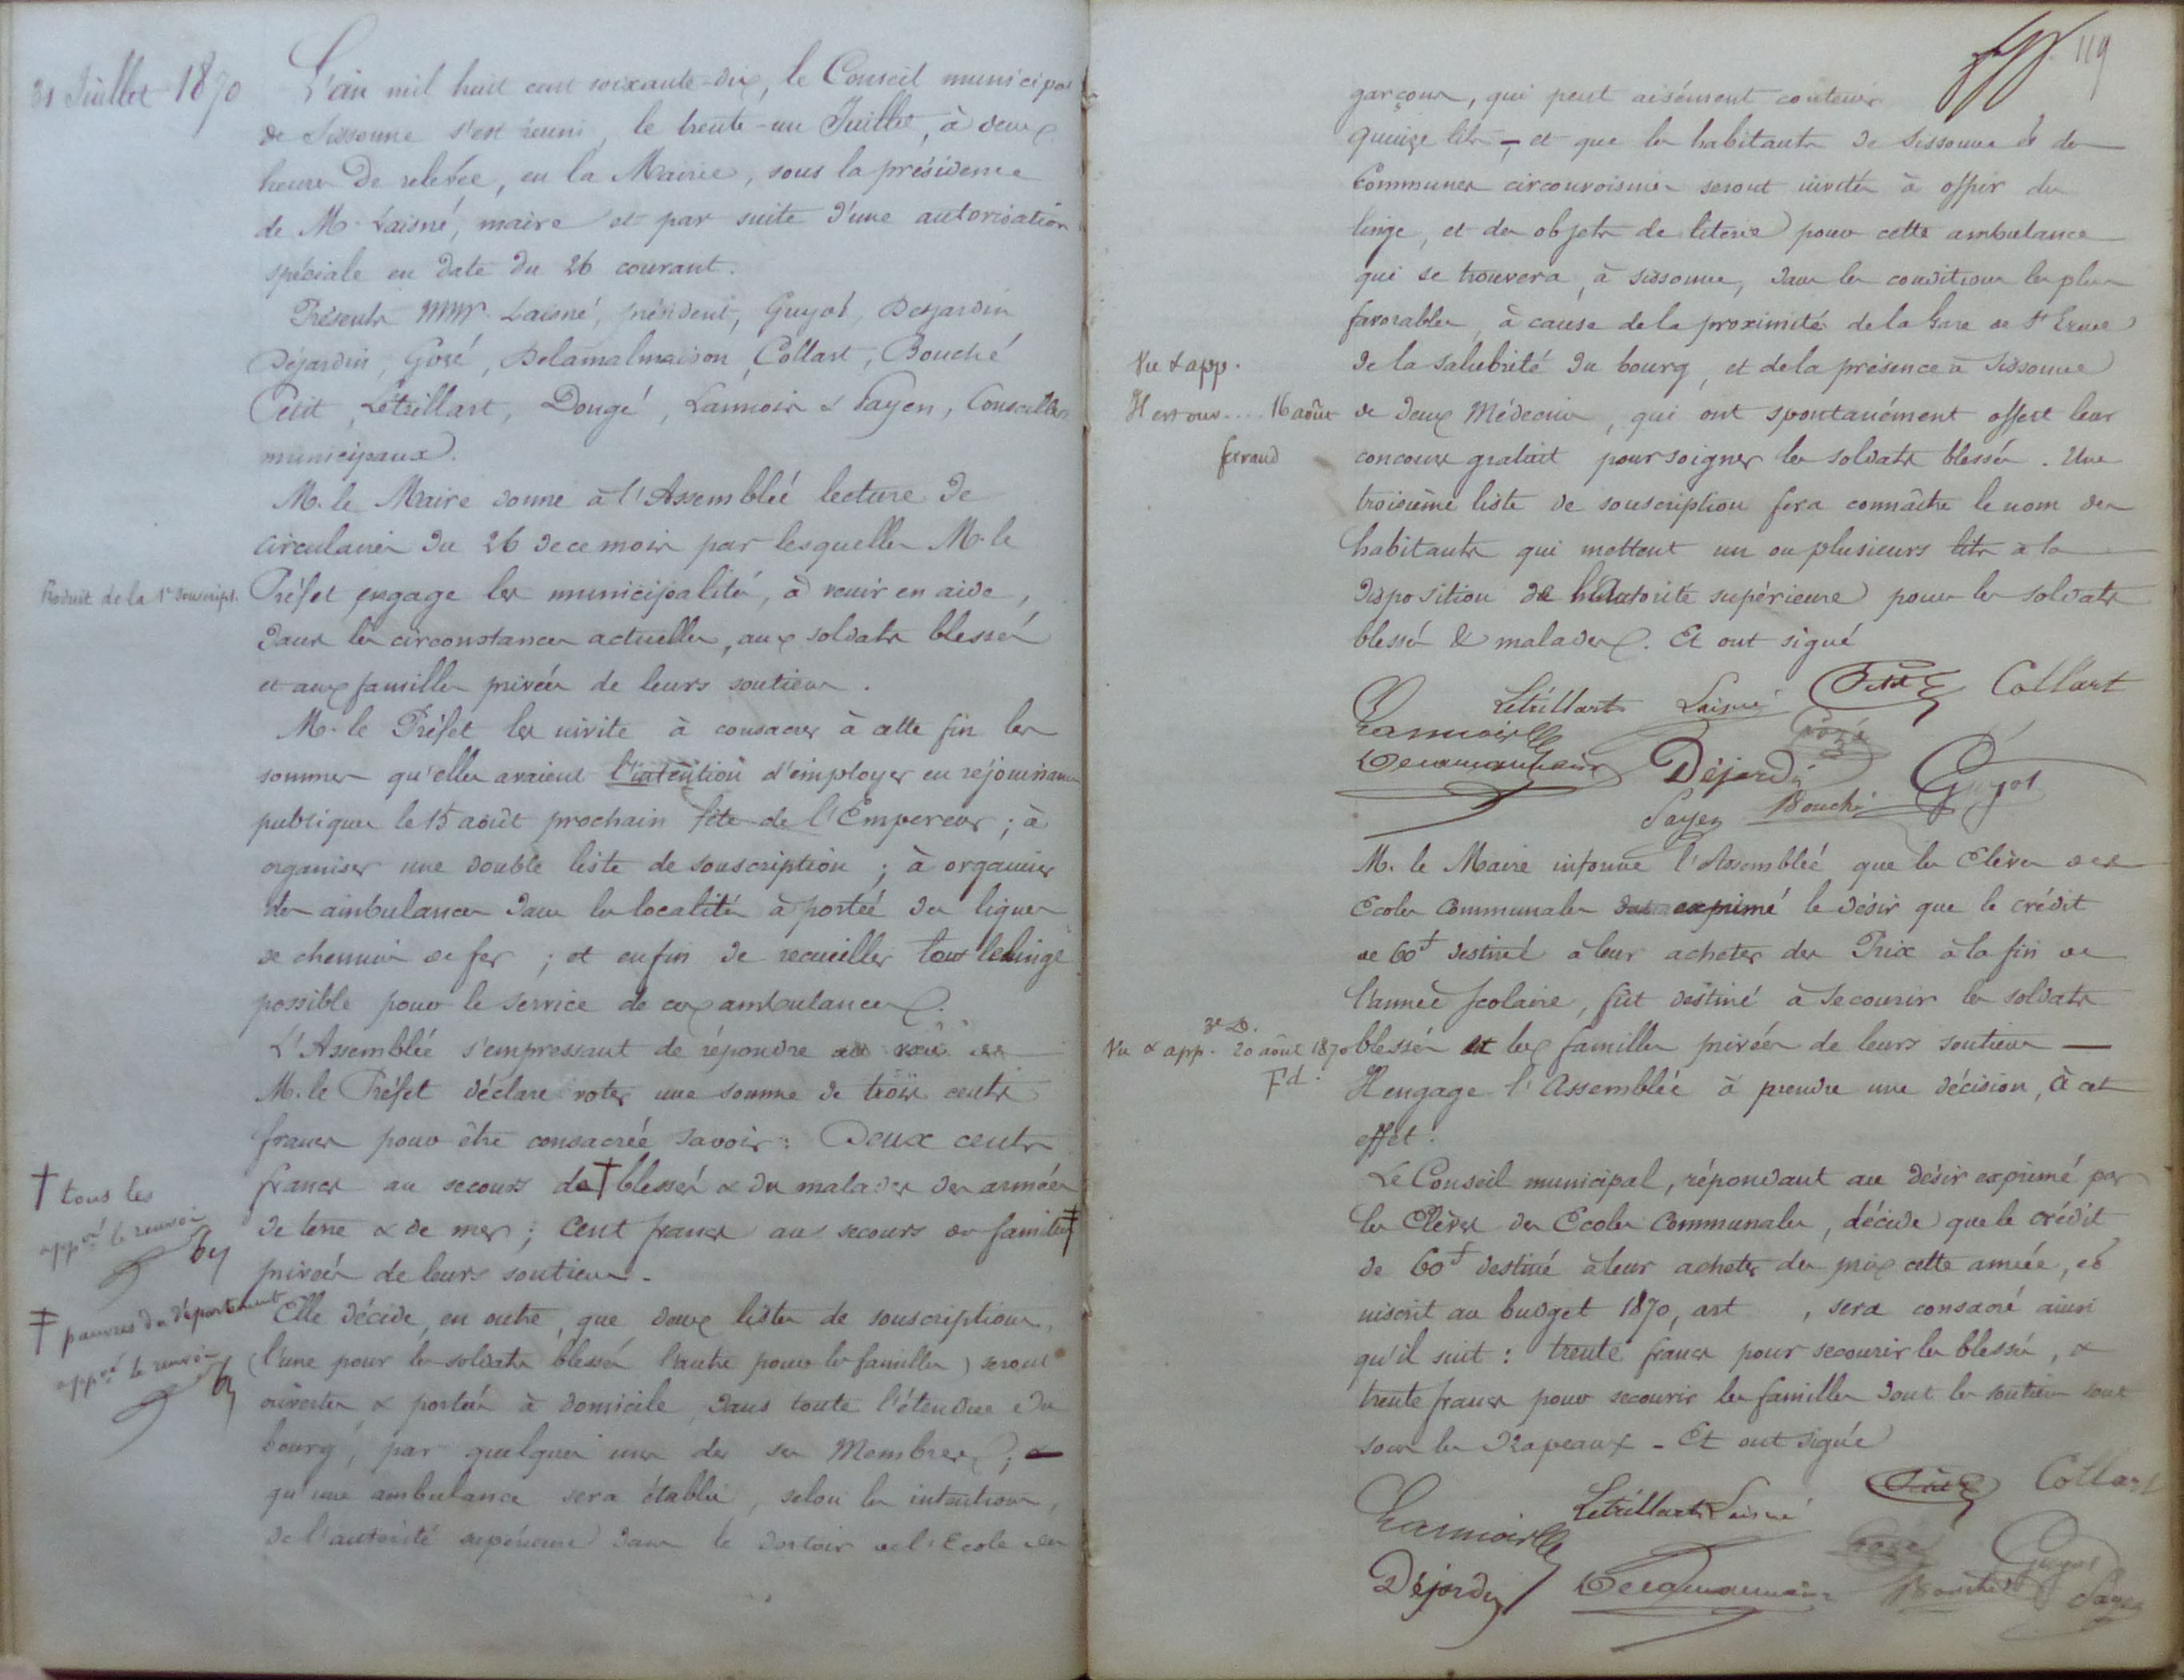 31 Juillet 1870
L'an mil huit cent soixante-dix, le Conseil municipal
de Sissonne s'est réuni, le trente-un Juillet, à deux
heures de relevée, en la Mairie, sous la présidence
de M. Laisné, maire et par suite d'une autorisation
spéciale en date du 26 courant.
Présents MM. Laisné, président, Guyot, Dejardin
Dejardin, Gosé, Delamalmaison, Collart, Bouché
Petit, Létrillart, Dougé, Lannois & Payen, Conseillers
municipaux.
M. le Maire donne à l'Assemblée lecture de
circulaires du 26 de ce mois par lesquelles M. le
Produit de la 1e Souscript.
Préfet engage les municipalités, à venir en aide,
dans les circonstances actuelles, aux soldats blessés
et aux familles privées de leurs soutiens.
M. le Préfet les invite à consacrer à cette fin les
sommes qu'elles avaient l'intention d'employer en réjouissances
publiques le 15 août prochain fête de l'Empereur ; à
organiser une double liste de souscription ; à organiser
des ambulances dans les localités à portée des lignes
de chemin de fer ; et enfin de recueillir tout le linge
possible pour le service de ces ambulances.
L'Assemblée s'empressant de répondre au vœu de
M. le Préfet déclare voter une somme de trois cents
francs pour être consacrée savoir : Deux cents
francs au secours de † blessés & des malades des armées
de terre & de mer ; Cent francs au secours des familles ‡
privées de leurs soutiens.
† tous les
appvé le renvoi
‡ pauvres du département
appvé le renvoi
Elle décide, en outre, que deux listes de souscriptions,
(l'une pour les soldats blessés l'autre pour les familles) seront
ouvertes & portées à domicile, dans toute l'étendue du
bourg, par quelques uns des ses Membres ; &
qu'une ambulance sera établie, selon les intentions,
de l'autorité supérieure dans le dortoir de l'Ecole des
119
garçons, qui peut aisément contenir
quinze lits - et que les habitants de Sissonne & des
Communes circonvoisines seront invités à offrir du
linge, et des objets de literie pour cette ambulance
qui se trouvera, à Sissonne, dans les conditions les plus
favorables, à cause de la proximité de la Gare de St Erme
de la salubrité du bourg, et de la présence à Sissonne
de deux Médecins, qui ont spontanément offert leur
concours gratuit pour soigner les soldats blessés. Une
troisième liste de souscription fera connaître le nom des
habitants qui mettent un ou plusieurs lits à la
disposition de l'Autorité supérieure pour les soldats
blessés & malades. Et ont signé
Vu & app.
16 août
feraud
Létrillart Laisné Petit Collart
Lannois Gosé
Dejardin Guyot
Payen Bouché
M. le Maire informe l'Assemblée que les Elèves des
Ecoles Communales ont exprimé le désir que le crédit
de 60f destiné à leur acheter des Prix à la fin de
l'année scolaire, fût destiné à secourir les soldats
blessés et les familles privées de leurs soutiens —
Il engage l'Assemblée à prendre une décision, à cet
effet.
3e D.
Vu & app. 20 août 1870
Fd.
Le Conseil municipal, répondant au désir exprimé par
les Elèves des Ecoles Communales, décide que le crédit
de 60f destiné à leur acheter des prix cette année, et
inscrit au budget 1870, art , sera consacré ainsi
qu'il suit : trente francs pour secourir les blessés, &
trente francs pour secourir les familles dont les soutiens sont
sous les drapeaux - Et ont signé
Létrillart Laisné Petit Collart
Lannois Gosé Guyot
Dejardin Bouché Payen